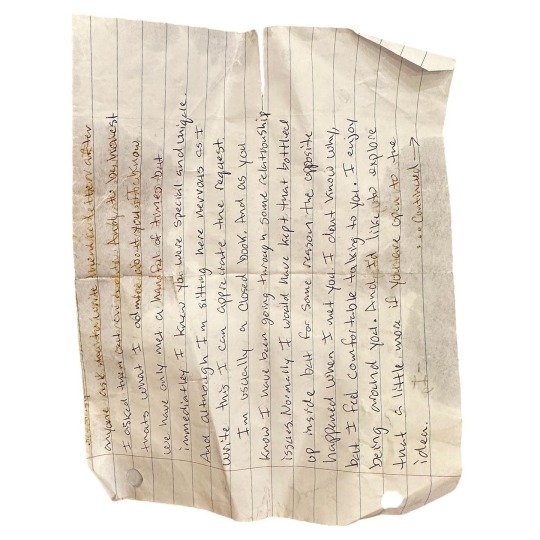 anyone ask me to write them a letter after
I asked them out on a date. And to be honest
thats what I admire about you. I know
we have only met a handful of times but
immediatley I knew you were special and unique.
And although I'm sitting here nervous as I
write this I can appreciate the request.
I'm usually a closed book. And as you
know I have been going through some relationship
issues. Normally I would have kept that bottled
up inside but for some reason the opposite
happened when I met you. I dont know why,
but I feel comfortable talking to you. I enjoy
being around you. And I'd like to explore
that a little more if you are open to the
idea. ...Continued →